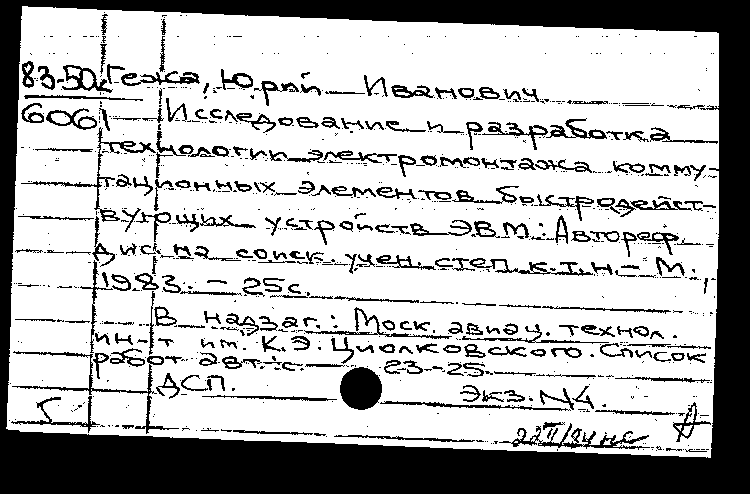 83-50к Гежа, Юрий Иванович
6061 Исследование и разработка
технологии электромонтажа комму-
тационных элементов быстродейст-
вующих устройств ЭВМ.: Автореф.
дис. на соиск. учен. степ. к.т.н. – М.,
1983. – 25 с.
В надзаг.: Моск. авиац. технол.
ин-т им. К.Э. Циолковского. Список
работ авт.: с. 23-25.
ДСП. Экз. №4.
Г